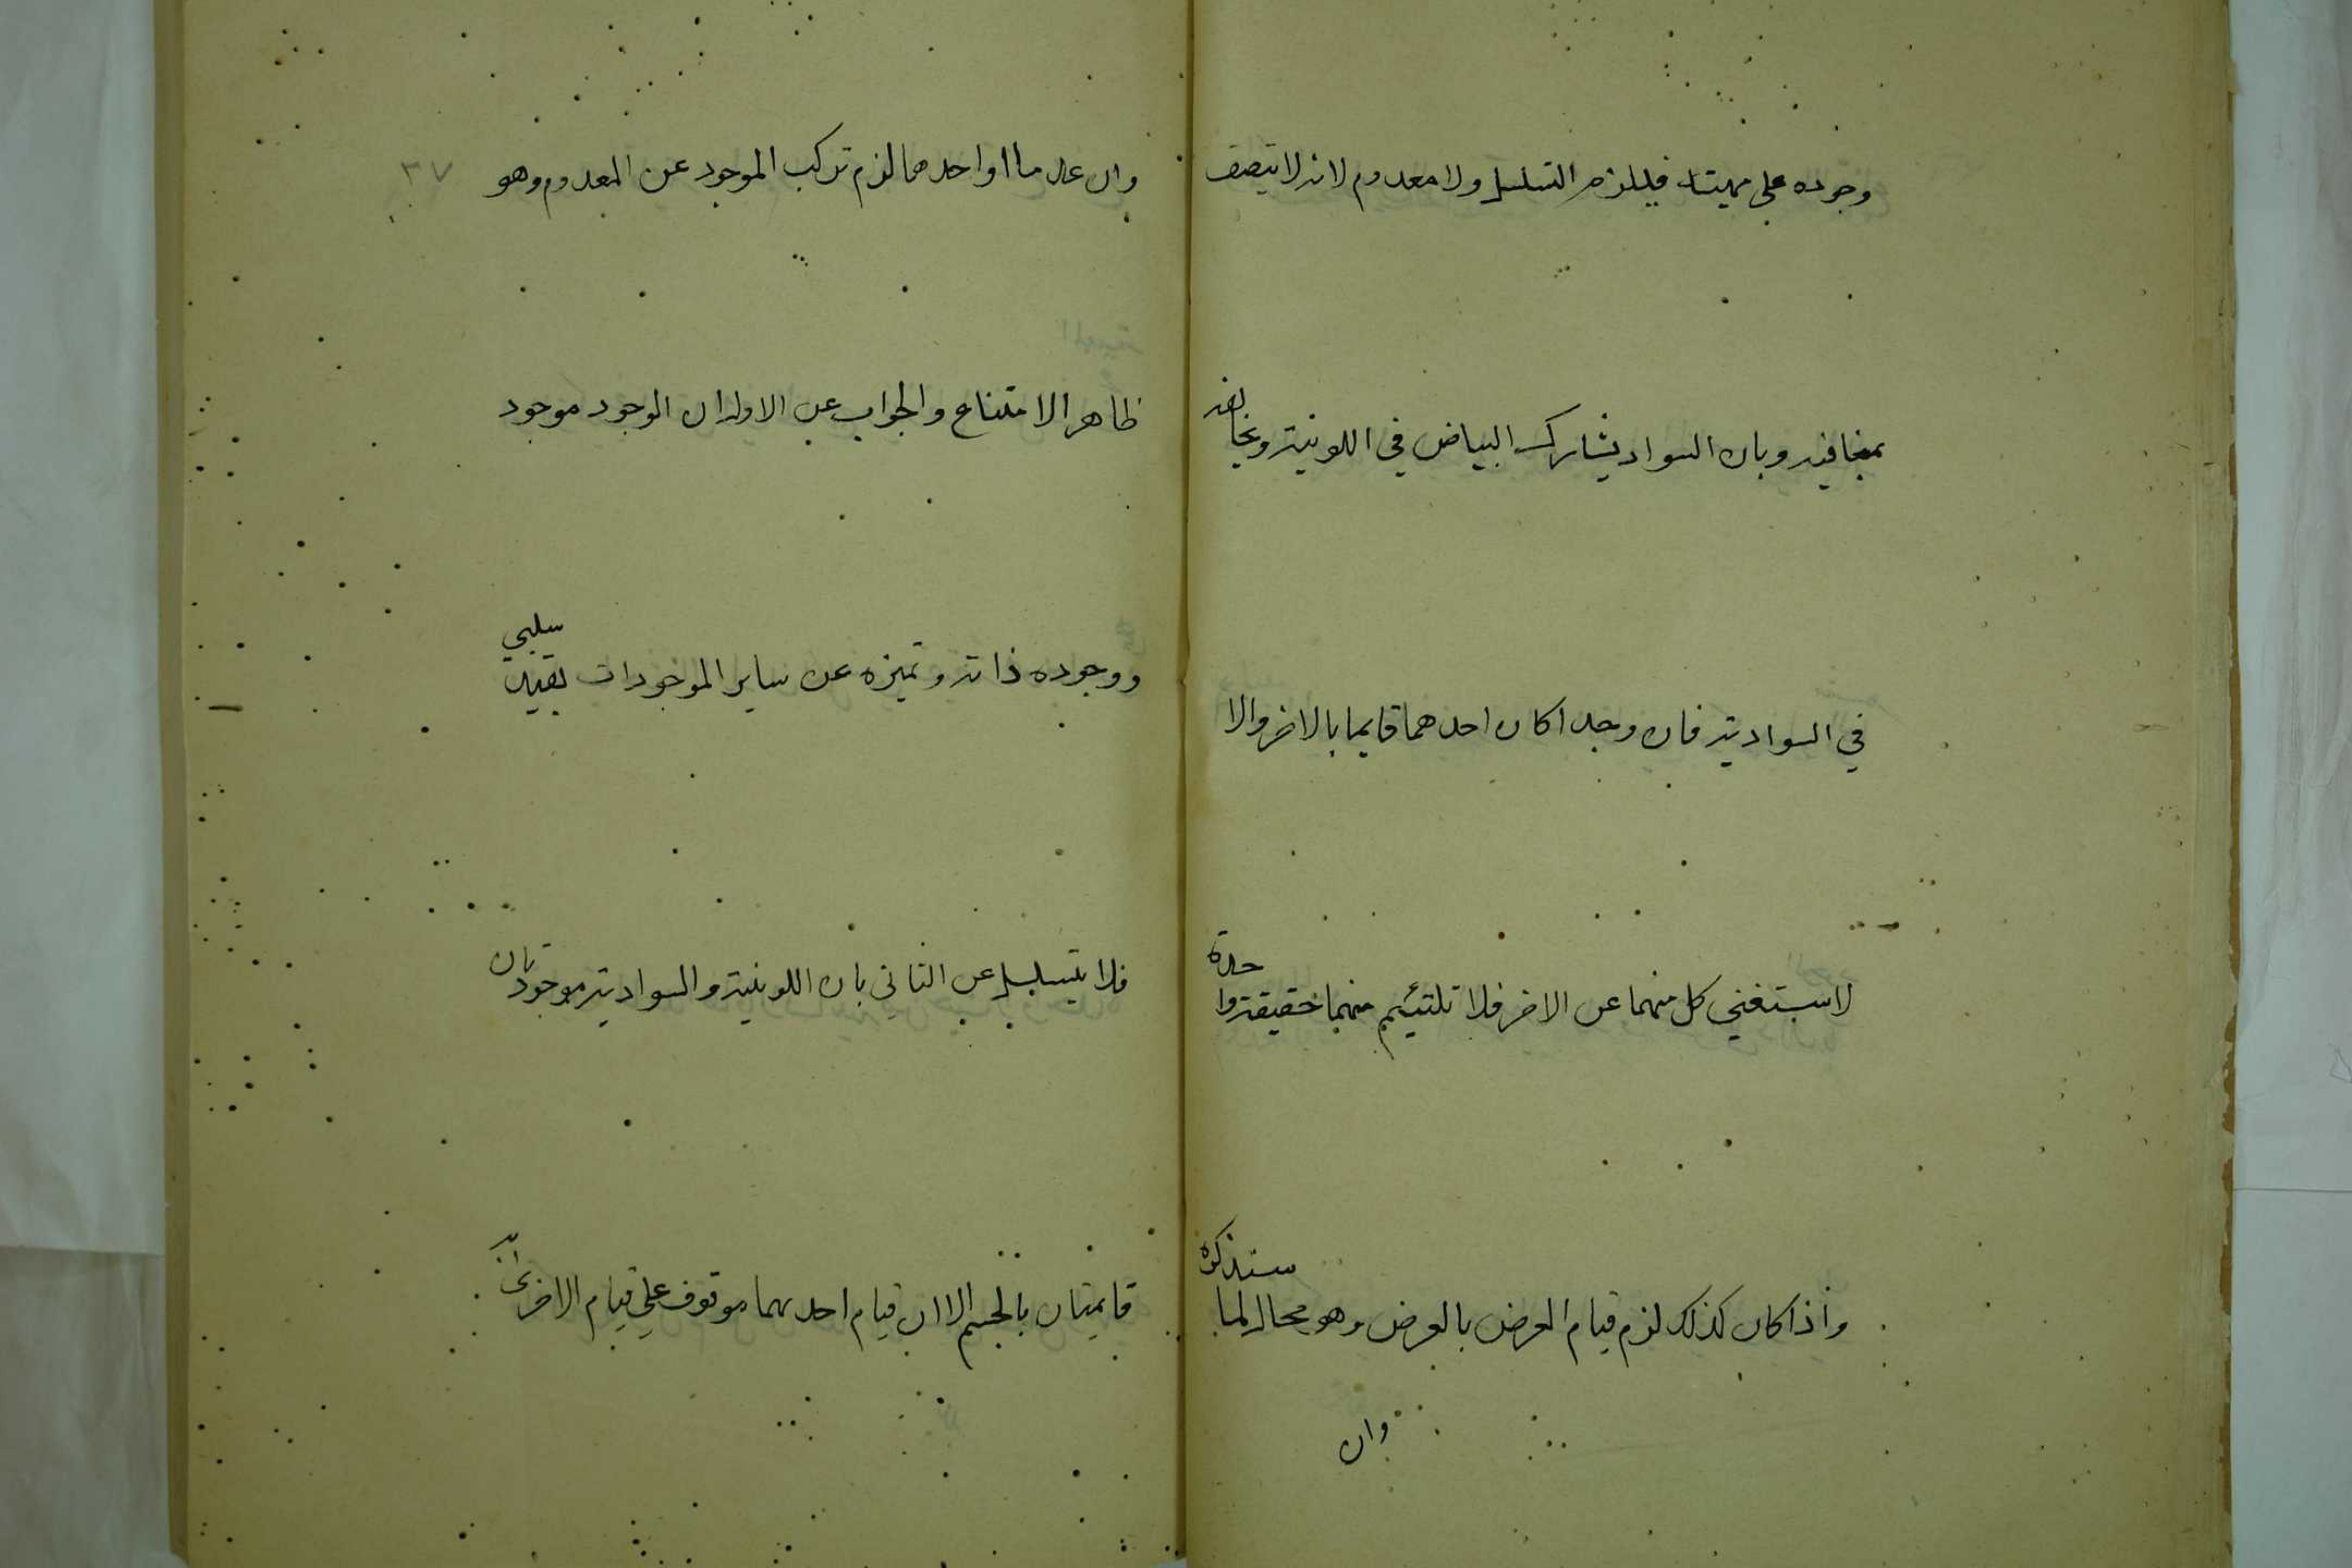 وجوده على مهيته فيلزم التسلسل ولا معدوم لانه لا يتصف
بمنافيه وبان السواد يشارك البياض في اللونية ويخالفه
في السوادية فان وجدا كان احدهما قايما بالاخر والا
لاستغني كل منهما عن الاخر فلا تلتئيم منهما حقيقة واحدة
واذا كان كذلك لزم قيام العرض بالعرض وهو محال لما سنذكره
وان
وان عدما او احدهما لزم تركب الموجود عن المعدوم وهو
٣٧
ظاهر الامتناع والجواب عن الاول ان الوجود موجود
ووجوده ذاته وتميزه عن ساير الموجودات بقيد سلبي
فلا يتسلسل عن الثاني بان اللونية والسوادية موجودتان
قايمتان بالجسم الا ان قيام احدىهما موقوف على قيام الاخرى